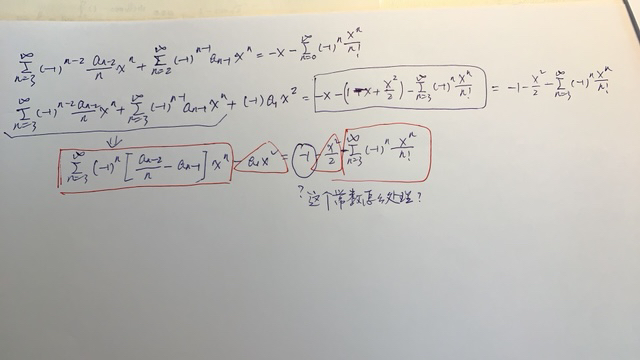 ∞∑n=3 (-1)^{n-2} \frac{a_{n-2}}{n} x^n + ∞∑n=2 (-1)^{n-1} a_{n-1} x^n = -x - ∞∑n=0 (-1)^n \frac{x^n}{n!}
∞∑n=3 (-1)^{n-2} \frac{a_{n-2}}{n} x^n + ∞∑n=3 (-1)^{n-1} a_{n-1} x^n + (-1) a_1 x^2 = -x - (1 - x + \frac{x^2}{2}) - ∞∑n=3 (-1)^n \frac{x^n}{n!} = -1 - \frac{x^2}{2} - ∞∑n=3 (-1)^n \frac{x^n}{n!}
⇓
∞∑n=3 (-1)^n [\frac{a_{n-2}}{n} - a_{n-1}] x^n - a_1 x^2 = -1 - \frac{x^2}{2} - ∞∑n=3 (-1)^n \frac{x^n}{n!}
? 这个常数怎么处理?